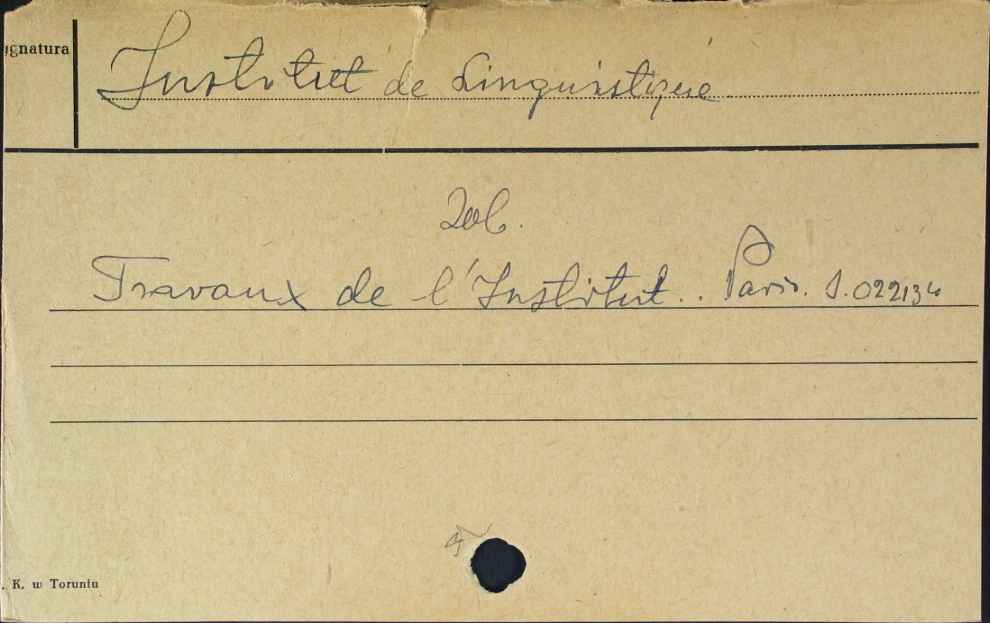 ignatura
Institut de Linguistique
Zob.
Travaux de l'Institut.. Paris. S.02213
. K. w Toruniu